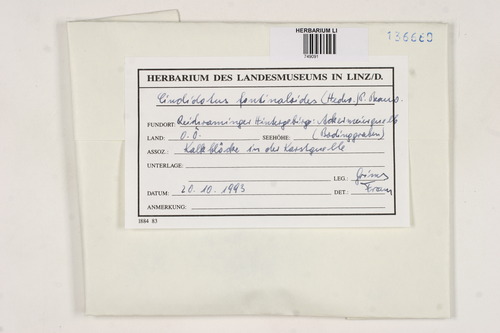 HERBARIUM LI
749091
136660
HERBARIUM DES LANDESMUSEUMS IN LINZ/D.
Cinclidotus fontinaloides (Hedw.) P. Beauv.
FUNDORT: Reichraminger Hintergebirge:
LAND: O.Ö. SEEHÖHE: (Bodinggraben)
ASSOZ.: Kalkblöcke in der Karstquelle
UNTERLAGE:
LEG.: Grims
DATUM: 20.10.1993 DET.: Franz
ANMERKUNG:
I884 83